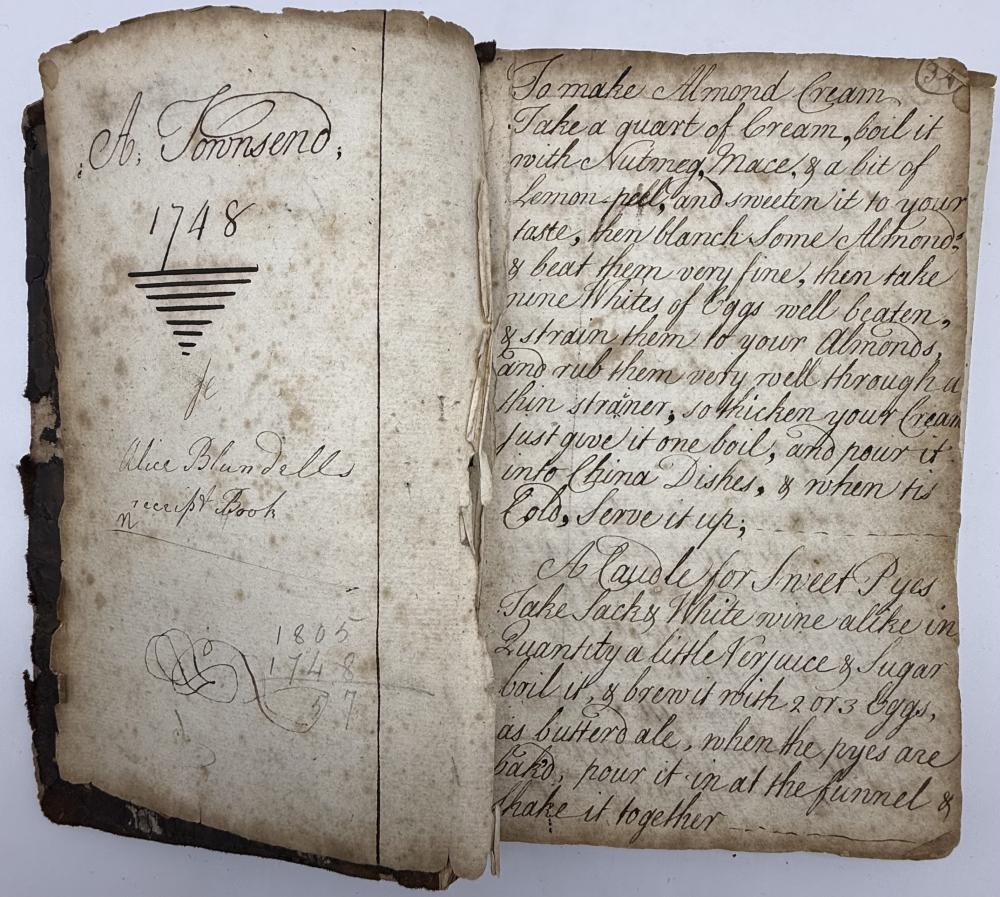 A. Townsend,
1748
Alice Blundells
receipt Book
1805
1748
57
34
To make Almond Cream
Take a quart of Cream, boil it
with Nutmeg, Mace, & a bit of
Lemon-peel, and sweeten it to your
taste, then blanch some Almonds,
& beat them very fine, then take
nine Whites of Eggs well beaten,
& strain them to your Almonds,
and rub them very well through a
thin straner, so thicken your Cream
just give it one boil, and pour it
into China Dishes, & when tis
Cold, Serve it up;
A Caudle for Sweet Pyes
Take Sack & White wine alike in
Quantity a little Verjuice & Sugar
boil it, & brew it with 2 or 3 Eggs,
as butterd ale, when the pyes are
bak'd, pour it in at the funnel &
shake it together